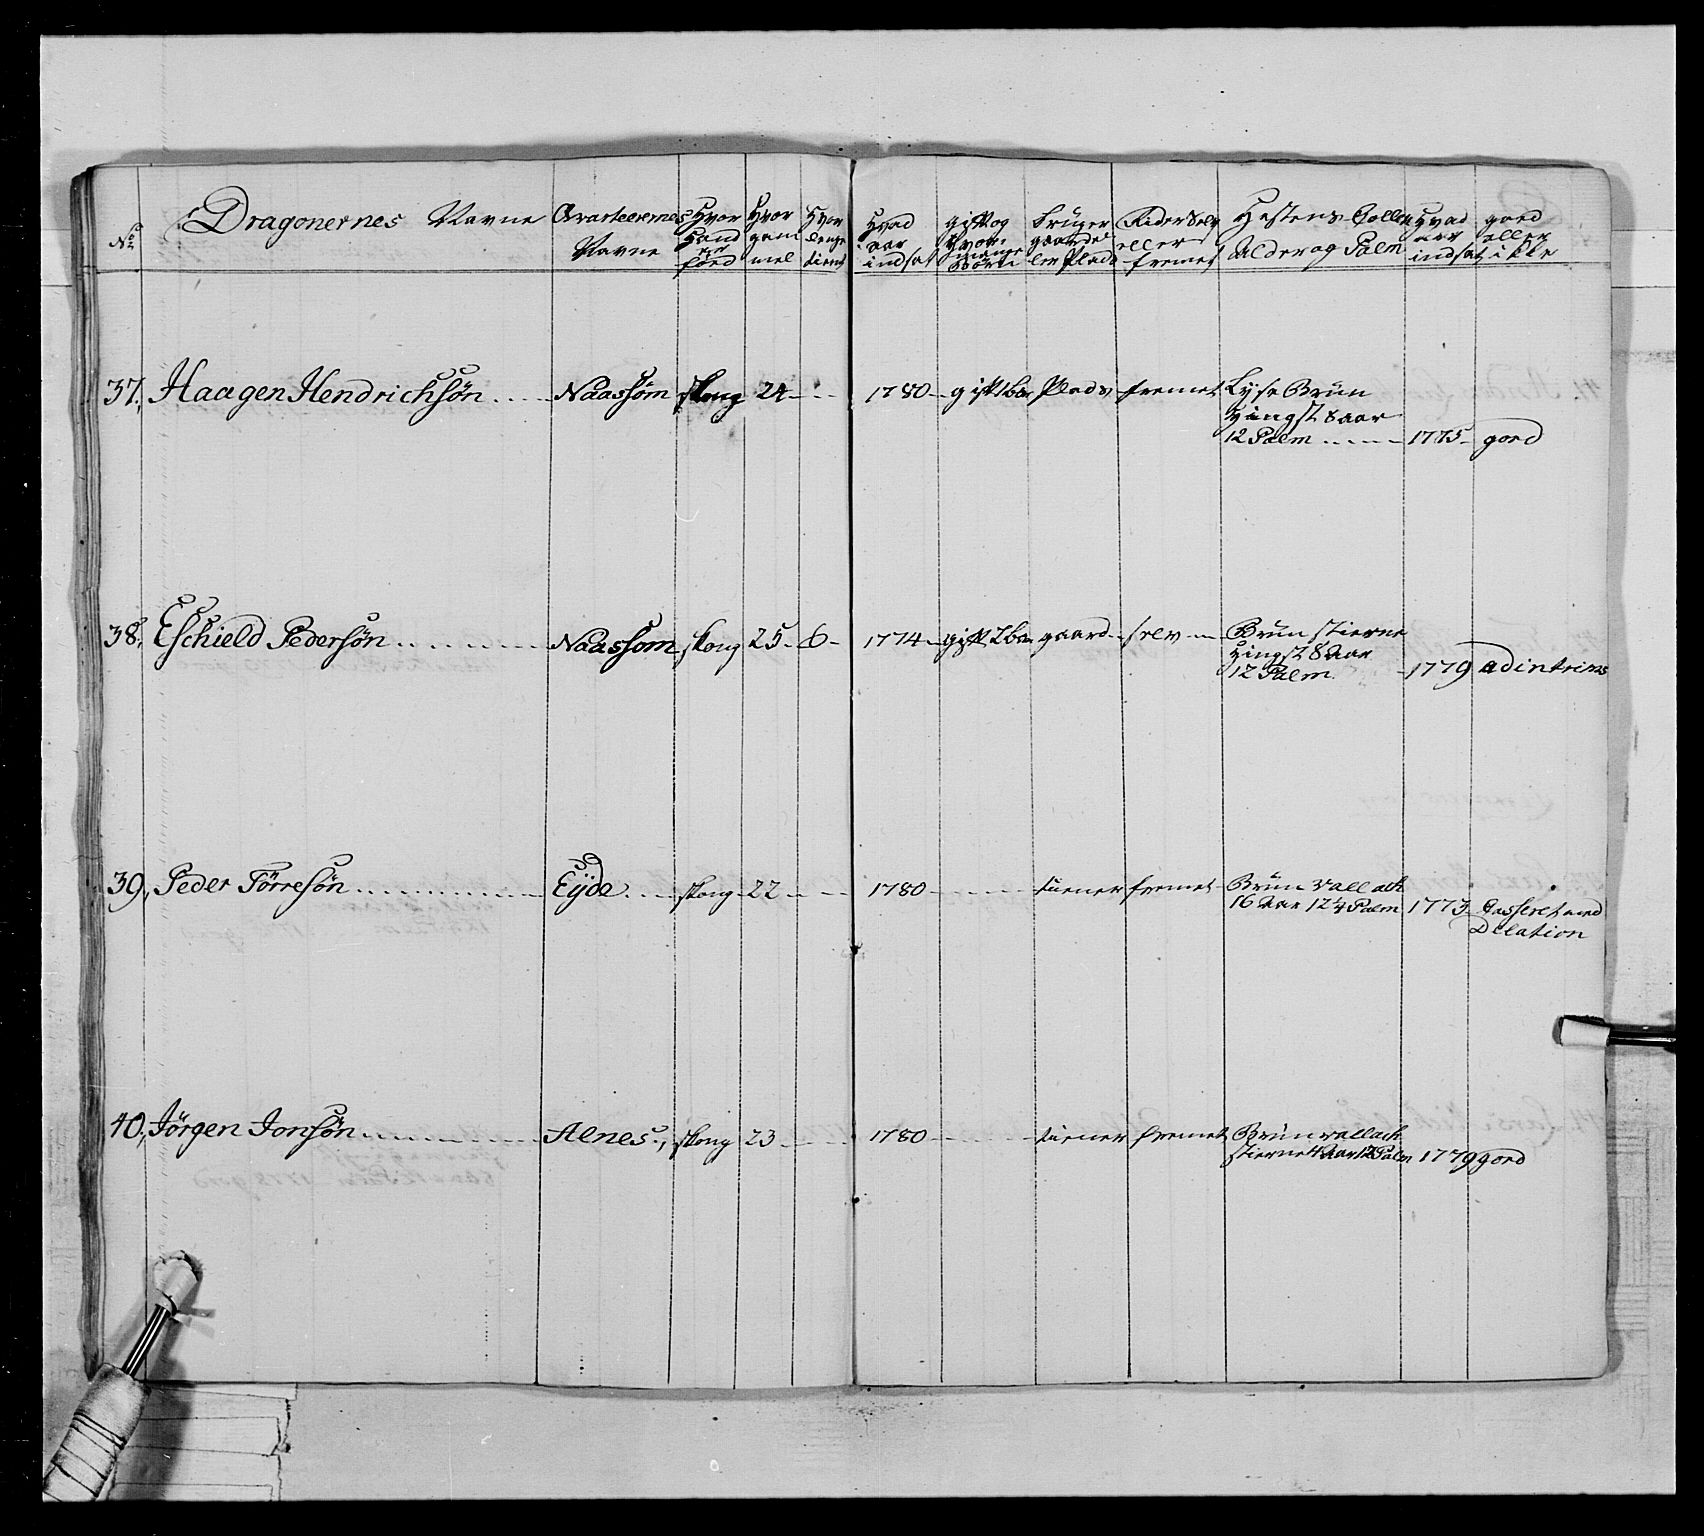 No Dragonernes Navne Qvarteerernes Navne Hvor Hand er föed Hvor gam mel Hvor lenge tient Hvad aar indsat gift og hvor mange Börn Bruger gaard el ler Plads Rider Selv eller fremet Hestens Coller Alder og Palm Hvad aar indsat goed eller ikke
37. Haagen Hendrichsön Naassöm 24 1780 gift Plads fremet Lyse Brun
Hingst 8 aar
12 Palm 1775 goed
38. Eschield Pedersön Naassom 25 6 1774 gift gaard selv Brun stierne
Hingst 8 Aar
12 Palm 1779
39. Peder Törresön Eyde 22 1780 tiener fremet Brun Vallack
16 Aar 12 1/4 Palm 1773 Casseret med
Delation
40. Jörgen Jonsön Alnes 23 1780 tiener fremet Brun vallack
stiernet 12 Palm 1779 goed